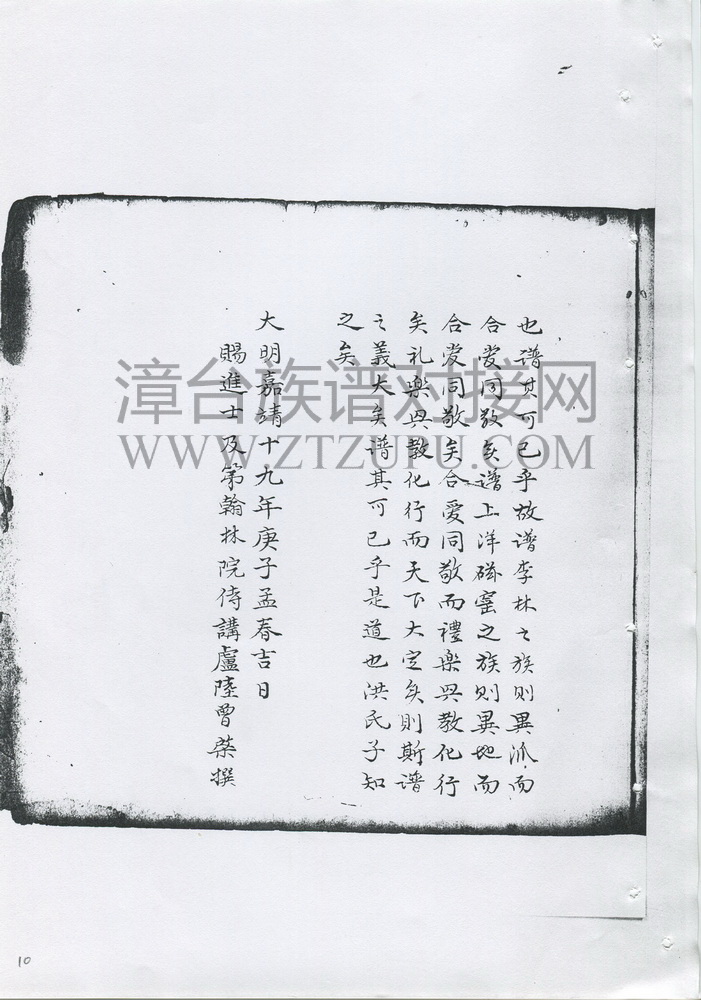 也谱其可已乎故谱李林之族则異派而
合爱同敬矣谱上洋磁窰之族则異地而
合爱同敬矣合愛同敬而禮樂興教化行
矣礼樂興教化行而天下大定矣則斯谱
之義大矣谱其可已乎是道也洪氏子知
之矣
大明嘉靖十九年庚子孟春吉日
賜進士及第翰林院侍講盧陸曾榮撰
漳台族谱对接网
WWW.ZTZUPU.COM
10